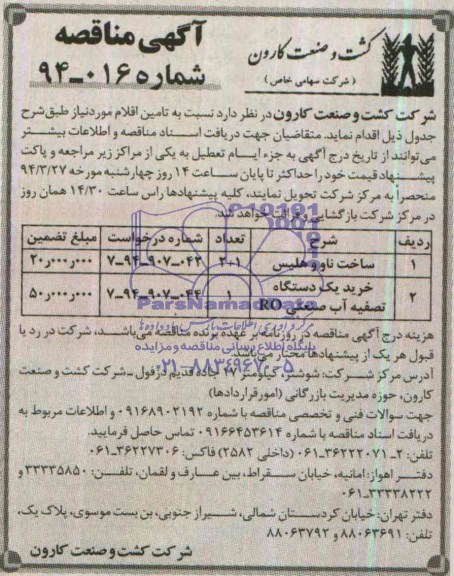 آگهی مناقصه
شماره ۰۱۶-۹۴
کشت و صنعت کارون
( شرکت سهامی خاص )
شرکت کشت و صنعت کارون در نظر دارد نسبت به تامین اقلام موردنیاز طبق شرح
جدول ذیل اقدام نماید. متقاضیان جهت دریافت اسناد مناقصه و اطلاعات بیشتر
می‌توانند از تاریخ درج آگهی به جزء ایام تعطیل به یکی از مراکز زیر مراجعه و پاکت
پیشنهاد قیمت خود را حداکثر تا پایان ساعت ۱۴ روز چهارشنبه مورخه ۹۴/۳/۲۷
منحصراً به مرکز شرکت تحویل نمایند، کلیه پیشنهادها راس ساعت ۱۴/۳۰ همان روز
در مرکز شرکت بازگشایی و قرائت خواهد شد.
ردیف شرح تعداد شماره درخواست مبلغ تضمین
۱ ساخت ناو و هلیس ۲+۱ ۷-۹۴-۹۰۷-۰۴۳ ۲۰,۰۰۰,۰۰۰
۲ خرید یک دستگاه تصفیه آب صنعتی RO ۱ ۷-۹۴-۹۰۷-۰۴۴ ۵۰,۰۰۰,۰۰۰
ParsNamadData
پایگاه اطلاع رسانی مناقصه و مزایده
۰۲۱-۸۸۳۴۹۶۷۰-۵
هزینه درج آگهی مناقصه در روزنامه بر عهده برنده مناقصه می‌باشد، شرکت در رد یا
قبول هر یک از پیشنهادها مختار می‌باشد.
آدرس مرکز شرکت: شوشتر، کیلومتر ۲۷ جاده قدیم دزفول - شرکت کشت و صنعت
کارون، حوزه مدیریت بازرگانی (امور قراردادها)
جهت سوالات فنی و تخصصی مناقصه با شماره ۰۹۱۶۸۹۰۲۱۹۲ و اطلاعات مربوط به
دریافت اسناد مناقصه با شماره ۰۹۱۶۶۴۵۳۶۱۴ تماس حاصل فرمایید.
تلفن: ۲-۳۶۲۲۲۰۷۱-۰۶۱ (داخلی ۲۵۸۲) فاکس: ۳۶۲۲۷۳۰۶-۰۶۱
دفتر اهواز: امانیه، خیابان سقراط، بین عارف و لقمان، تلفن: ۳۳۳۳۵۸۵۰ و
۳۳۳۳۸۲۲۲-۰۶۱
دفتر تهران: خیابان کردستان شمالی، شیراز جنوبی، بن بست موسوی، پلاک یک،
تلفن: ۸۸۰۶۳۶۹۱ و ۸۸۰۶۳۷۹۲
شرکت کشت و صنعت کارون